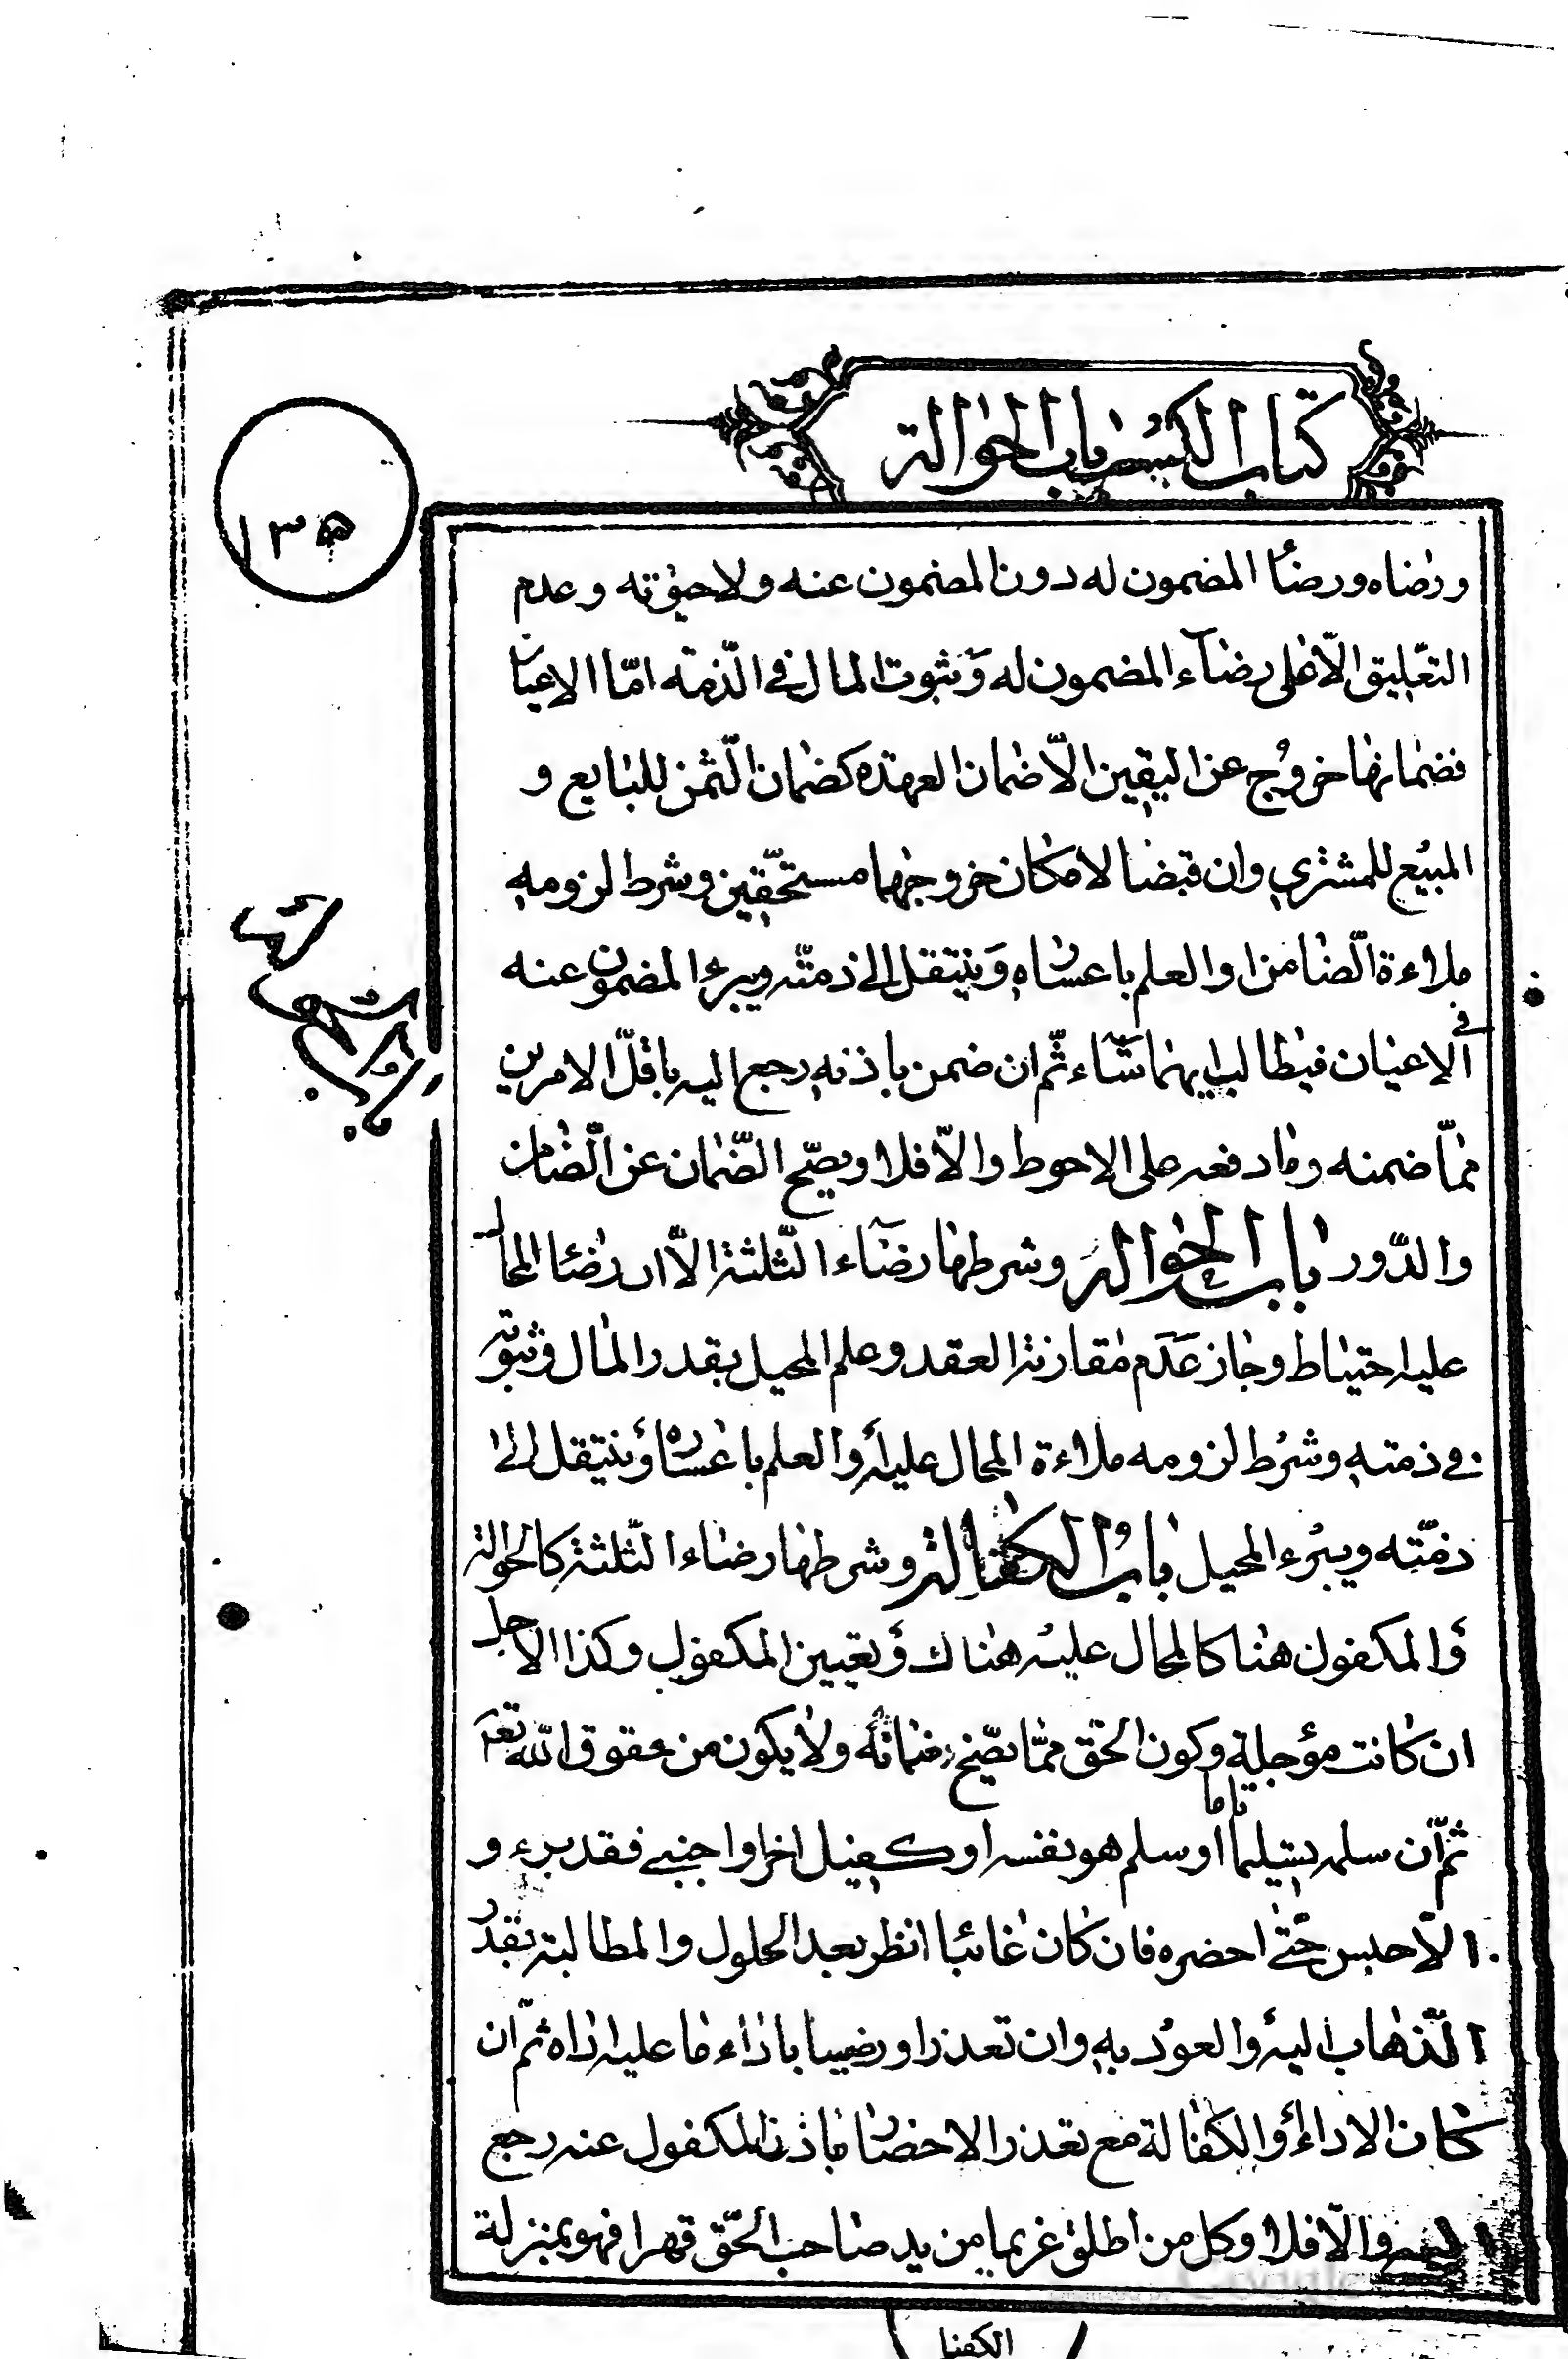 كتاب الكسب باب الحوالة
١٣٥
ورضاه ورضاء المضمون له دون المضمون عنه ولا حيوته وعدم
التعليق الا على رضاء المضمون له وثبوت المال في الذمة امّا الاعيان
فضمانها خروج عن اليقين الّا ضمان العهدة كضمان الثمن للبايع و
المبيع للمشتري وان قبضا لامكان خروجهما مستحقين وشرط لزومه
ملاءة الضامن او العلم باعساره وينتقل الى ذمته ويبرء المضمون عنه
الا في الاعيان فيطالب ايهما شاء ثم ان ضمن باذنه رجع اليه باقلّ الامرين
ممّا ضمنه وما دفعه على الاحوط والّا فلا ويصحّ الضّمان عن الضّامن
والدّور باب الحوالة وشرطها رضاء الثّلثة الّا ان رضاء المحال
عليه احتياط وجاز عدم مقارنته العقد وعلم المحيل بقدر المال وثبوته
في ذمته وشرط لزومه ملاءة المحال عليه او العلم باعساره وينتقل الى
ذمّته ويبرء المحيل باب الكفالة وشرطها رضاء الثّلثة كالحوالة
والمكفول هنا كالمحال عليه هناك وتعيين المكفول وكذا الاجل
ان كانت مؤجلة وكون الحقّ ممّا يصحّ ضمانه ولا يكون من حقوق الله تعم
ثمّ ان سلمه تسليما تاما او سلم هو نفسه او كفيل اخر او اجنبي فقد برء و
الّا حبس حتّى احضره فان كان غائبا انظر بعد الحلول والمطالبة بقدر
الذّهاب اليه والعود به وان تعذر او رضيا باداء ما عليه اداه ثمّ ان
كان الاداء او الكفالة مع تعذر الاحضار باذن المكفول عنه رجع
اليه والّا فلا وكل من اطلق غريما من يد صاحب الحقّ قهرا فهو بمنزلة
الكفيل